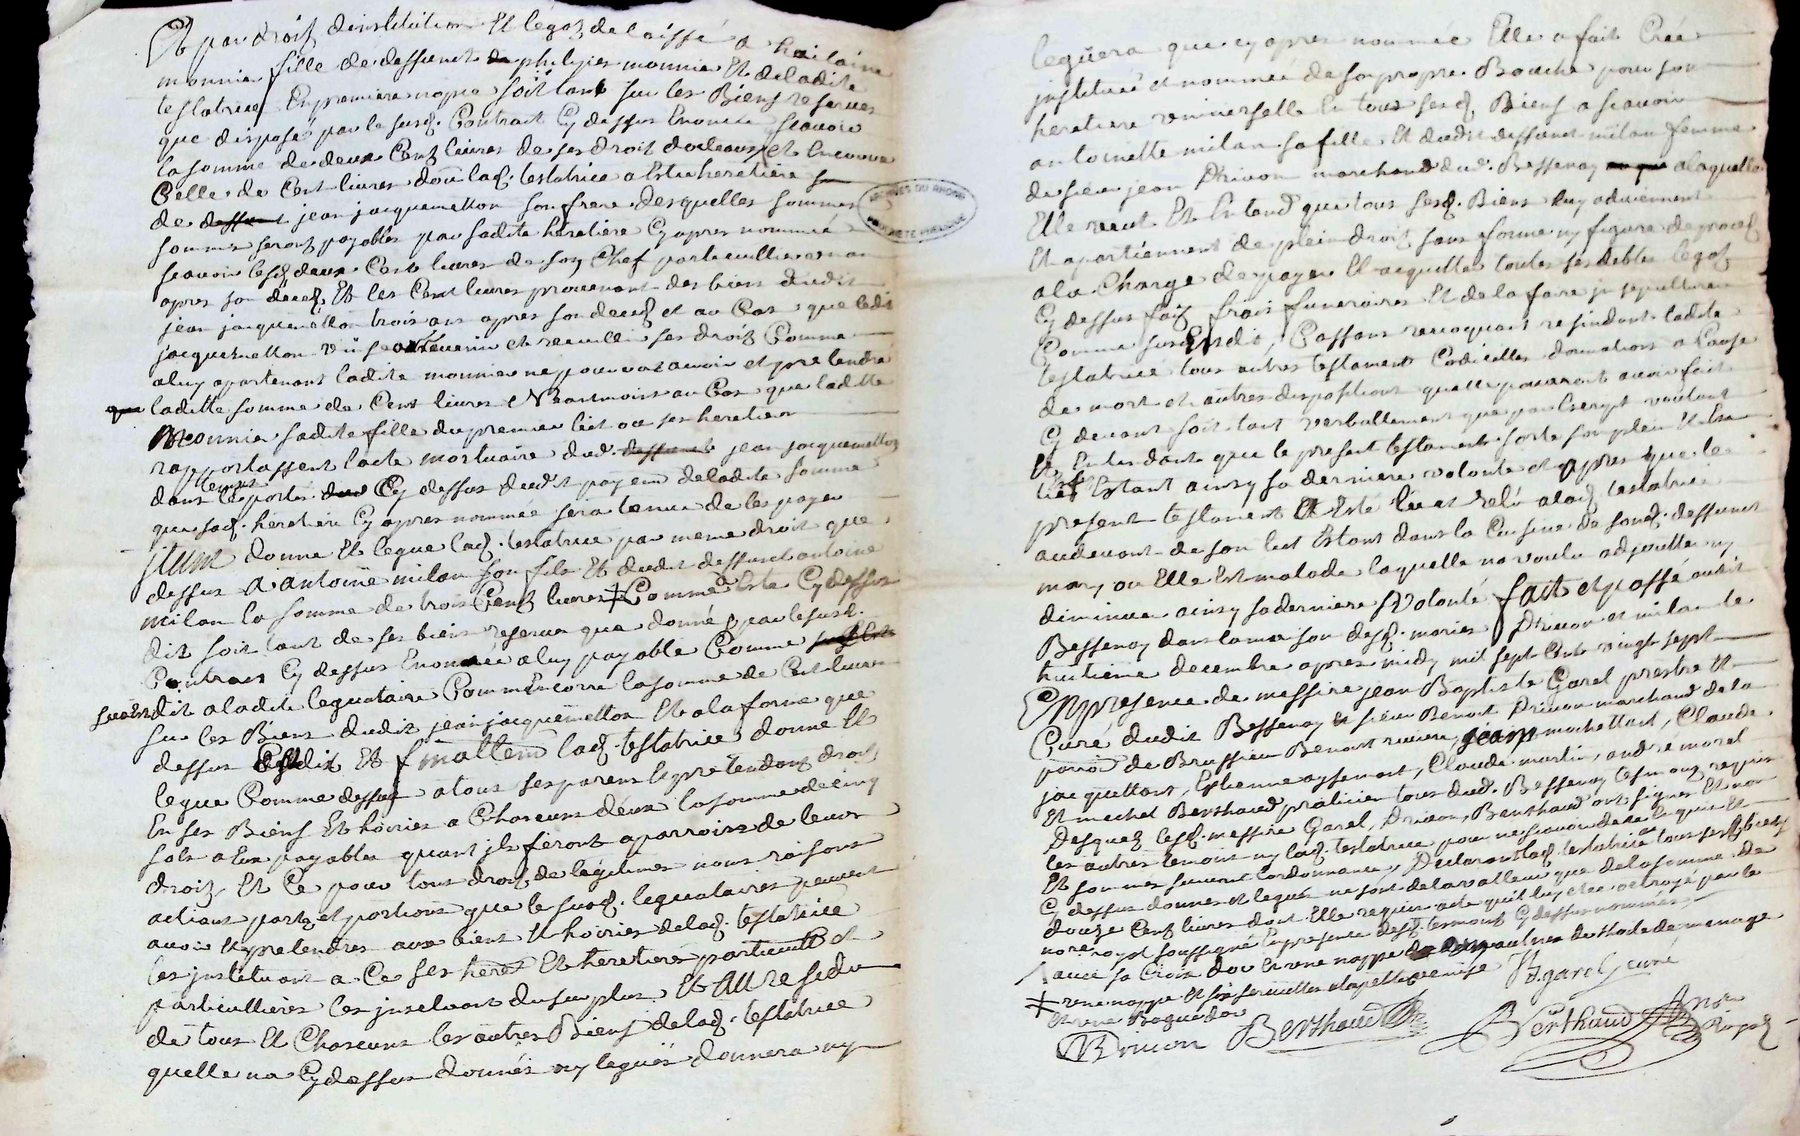 Et par droit dinstitution Et légat delaissé a
monnier fille de deffunct phelipies monnier Et deladite
testatrice En premiere nopce soit tant sur les Biens reserves
que disposé par le susd. Contrait Cy dessus Enoncé scavoir
la somme de deux Cent livres de ses droit et Encorre
Celle de Cent livres dou lad. testatrice a Esté heretiere
de jean jacquemetton son frere desquelles sommes
sommes seront payables par sadite héretiere Cy apres nommeé
scavoir lesd. deux Cent livres de son Chef particullier un an
apres son deced. Et les Cent livres provenant des biens dudit
jean jacquemetton trois ans apres son deced et au Cas que ledit
jacquemetton revenir et recueilli ses droit Comme
a luy apartenant ladite monnier ne pouvoir avoir et pretendre
que laditte somme de Cent livres Neantmoins au Cas que laditte
Monnier sadite fille du premier lict ou ses heretiers
raportassent lacte mortuaire dud. jean jacquemetton
dans le temps porté Cy dessus dudit payem. de ladite somme
que sad. héretiere Cy apres nommée sera tenue de le payer
Item donne Et legue lad. testatrice par meme droit que
dessus A antoine milan son fils Et dudit deffunct antoine
milan la somme de trois Cent livres ‡ Comme Esté Cy dessus
dit soit tant de ses biens reserves que donné par le susd.
Contrait Cy dessus Enoncée a luy payable Comme
dit a ladite leguataire Comm Encorre la somme de Cent livres
sur les Biens dudit jean jacquemetton Et a la forme que
dessus Est dit Et finallem. lad. testatrice donne Et
legue Comme dessus a tous ses parens Et pretendans droit
En ses Biens Et hoiries a Chascuns deux la somme de cinq
sols a Eux payables quant ils feront aparroitre de leurs
droit, Et Ce pour tous droit de légitimes noms raisons
actions partz et portions que le susd. leguataires peuvent
avoir Et pretendres aux biens Et hoiries de lad. testatrice
les instituant a Ce ses heret. Et heretieres particull. et
particullieres les jnselvant du surplus Et Au residu
de tous Et Chascuns les autres Biens de lad. testatrice
quelle na Cy dessus donnés ny legués donnera ny
leguera que cy apres nommée Elle a fait Créé
institué et nommeé de sa propre Bouche pour son
heretiere universelle En tous sesd. Biens a scavoir
antoinette milan sa fille Et dudit deffunct milan femme
de sieur jean Drivon marchand dud. Bessenay a laquelle
Elle veut Et Entend que tous sesd. Biens luy adviennent
Et apartiennent de plein droit sans forme ny figure de proced
a la Charge de payer Et acquitter toutes ses debtes legat
Cy dessus fait frais funeraires Et de la faire jnsepulturer
Comme sus Est dit, Cassant revoquant resindant ladite
testatrice tous autres testament Codicilles donnations a Cause
de mort et autres dispositions quelle pouvoit avoir fait
Cy devant soit tant verballement que par Escript voulant
Et Entendant que le present testament sorte son plein Et En
tier Estant ainsy sa derniere volonté et apres que le
present testament a Esté lu et relu a lad. testatrice
audevant de son lict Estant dans la Cuisine de sond. deffunct
mary ou Elle Est malade laquelle na voulu adjoutter ny
diminuer ainsy sa derniere volonté fait et passé audit
Bessenay dans la maison desd. mariés Drivon et milan le
huitieme decembre apres midy mil sept Cent vingt sept
En presence de messire jean Baptiste Garel prestre Et
Curé dudit Bessenay sieur Benoit Drivon marchand de la
paroi. de Brussieu Benoit riviere, jean machettant, Claude
jacquettant, Estienne, Claude martin, andré morel
Et michel Berthaud praticien tous dud. Bessenay tesmoins requis
Desquelz lesd. messire Garel, Drivon, Berthaud ont signés Et non
les autres temoins ny lad. testatrice pour ne scavoir de ce Enquis Et
Et sommes suivant lordonnance, Declarant lad. testatrice tous sesd. biens
Cy dessus donnés et legués ne sont de la valleur que de la somme de
douze Cent livres dont Elle requis acte quil luy a esté octroyé par le
nore royal soussigné En presence desd. tesmoins Cy dessus nommés
avec sa Croix dor Et une nappe
‡ une nappe Et six serviettes
Et une Bague dor
JBgarel curé
Drivon Berthaud Berthaud Nore Royal